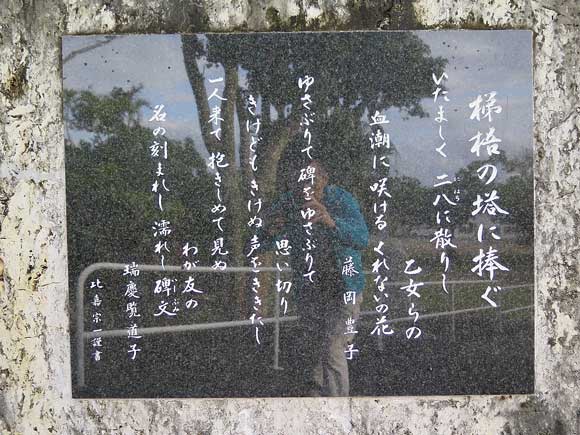 梯梧の塔に捧ぐ
いたましく 二八に散りし
乙女らの
血潮に咲ける くれないの花
藤岡豊子
ゆさぶりて碑をゆさぶりて
思い切り
きけどもきけぬ声をききたし
一人来て 抱きしめて見ぬ
わが友の
名の刻まれし 濡れし碑文
瑞慶覧道子
比嘉宗一謹書